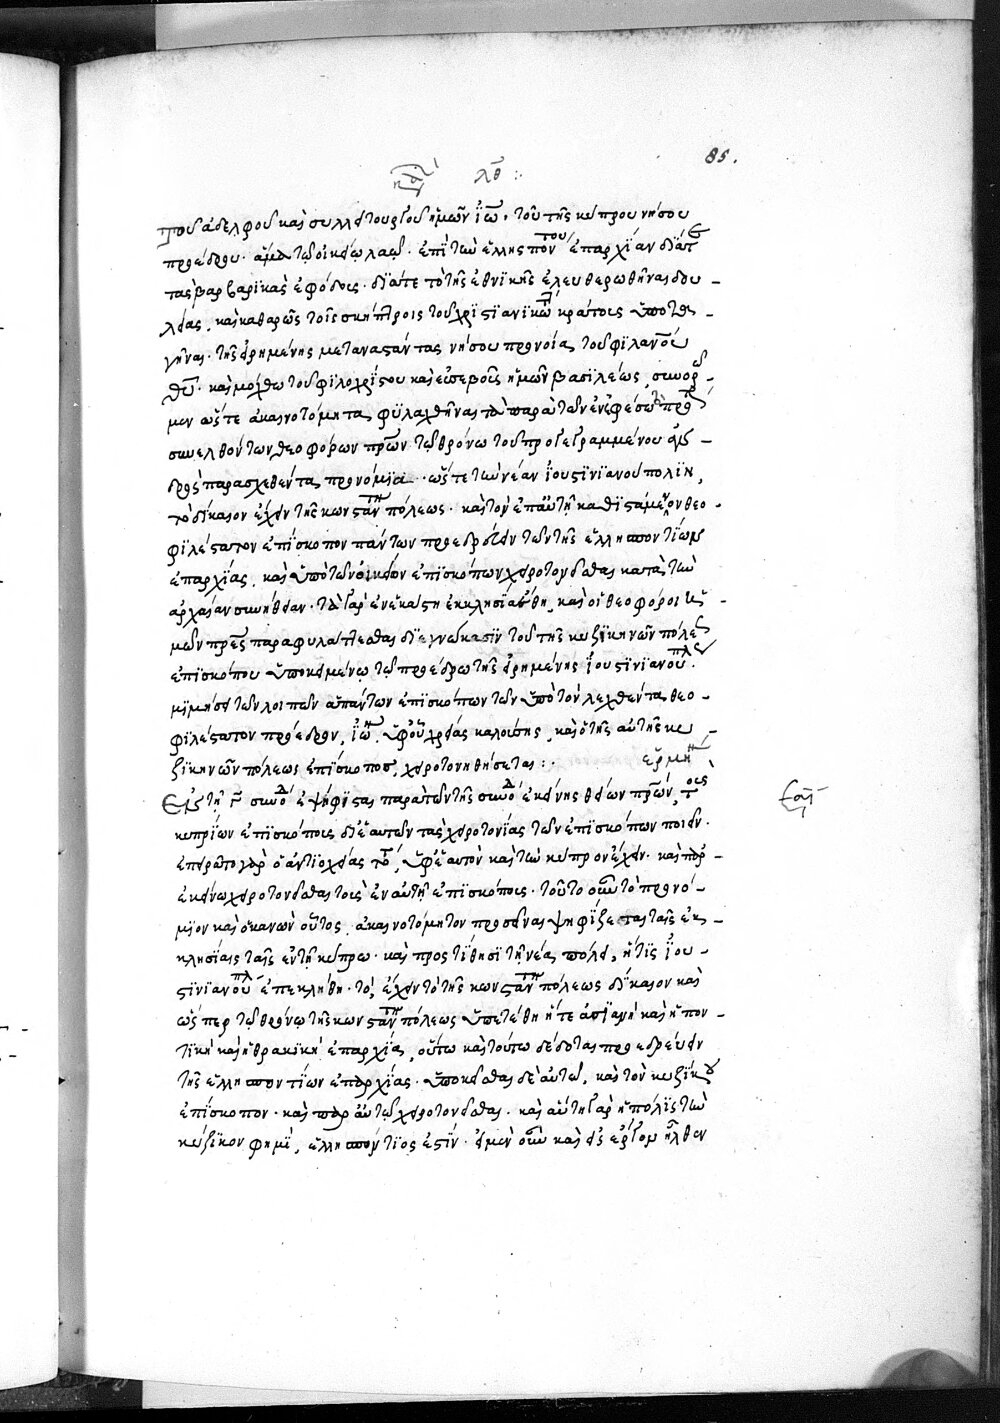 85.
λθ :
Τοῦ ἀδελφοῦ καὶ συλλειτουργοῦ ἡμῶν ἰω, τοῦ τῆς κυπρου νήσου
προέδρου· ἅμα τῷ οἰκείω λαῷ· ἐπὶ τὴν ἑλλησποντου ἐπαρχίαν διά τε
τὰς βαρβαρικὰς ἐφόδους· διά τε τὸ τῆς ἐθνικῆς ἐλευθερωθῆναι δου -
λείας, καὶ καθαρῶς τοῖς σκήπτροις τοῦ χριστιανικω κράτους ὑποτα -
γῆναι· τῆς εἰρημένης μεταναστάντας νήσου προνοία τοῦ φιλανου
θυ· καὶ μόχθω τοῦ φιλοχρίστου καὶ εὐσεβοῦς ἡμῶν βασιλέως, συνορ -
μεν ὥστε ἀκαινοτόμητα φυλαχθῆναι τὰ παρὰ τῶν ἐν ἐφέσω τὸ πρ
συνελθόντων θεοφόρων πρων τῷ θρόνω τοῦ προγεγραμμένου ἀν -
δρὸς παρασχεθέντα προνόμια· ὥστε τὴν νέαν ἰουστινιανουπολιν,
τὸ δίκαιον ἔχειν τῆς κωνσταντι πόλεως· καὶ τὸν ἐπαὐτῇ καθιστάμενον θεο -
φιλέστατον ἐπίσκοπον πάντων προεδρεύειν τῶν τῆς ἑλλησποντίων
ἐπαρχίας, καὶ ὑπὸ τῶν οἰκείων ἐπισκόπων χειροτονεῖσθαι κατὰ τὴν
ἀρχαίαν συνήθειαν· τὰ γὰρ ἐν ἑκάστη ἐκκλησία ἔθη, καὶ οἱ θεοφόροι ἡ -
μῶν πρες παραφυλάττεσθαι διεγνώκασιν τοῦ τῆς κυζικηνῶν πόλεως
ἐπισκόπου ὑποκειμένω τῷ προέδρω τῆς εἰρημένης ἰουστινιανουπλε
μιμήσει τῶν λοιπῶν ἁπάντων ἐπισκόπων τῶν ὑπὸ τὸν λεχθέντα θεο -
φιλέστατον πρόεδρον, ἰω, ὑφοῦ χρείας καλούσης, καὶ ὁ τῆς αὐτῆς κυ -
ζικηνῶν πόλεως ἐπίσκοπος, χειροτονηθήσεται :· ἑρμη
Ἐν τῆ γ συνοδ ἐψήφισται παρὰ τῶν τῆς συνοδ ἐκείνης θείων πρων, τους
κυπρίων ἐπισκόπους διἑαυτῶν τὰς χειροτονίας τῶν ἐπισκόπων ποιεῖν·
ἐπειρᾶτο γὰρ ὁ ἀντιοχείας τότε, ὑφἑαυτὸν καὶ τὴν κύπρον ἔχειν· καὶ παρ -
ἐκείνω χειροτονεῖσθαι τοὺς ἐν αὐτῇ ἐπισκόπους· τοῦτο οὖν τὸ προνό -
μιον καὶ ὁ κανὼν οὗτος, ἀκαινοτόμητον προσεῖναι ψηφίζεται ταῖς ἐκ -
κλησίαις ταῖς ἐν τῇ κύπρω· καὶ προστίθησι τῇ νέα πόλει, ἥτις ἰου -
στινιανουπλ ἐπεκλήθη· τὸ ἔχειν τὸ τῆς κωνσταντι πόλεως δίκαιον καὶ
ὥσπερ τῷ θρόνω τῆς κωνσταντι πόλεως ὑπετέθη ἥτε ἀσιανὴ καὶ ἡ πον -
τικὴ καὶ ἡ θρακικὴ ἐπαρχία, οὕτω καὶ τούτω δέδοται προεδρεύειν
τῆς ἑλλησποντίων ἐπαρχίας· ὑποκεῖσθαι δὲ αὐτῷ, καὶ τὸν κυζίκου
ἐπίσκοπον· καὶ παραὐτῷ χειροτονεῖσθαι· καὶ αὐτὴ γὰρ ἡ πόλις τὴν
κύζικον φημὶ, ἑλλησπόντιος ἐστίν· εἰ μὲν οὖν καὶ εἰς ἔργον ἦλθον